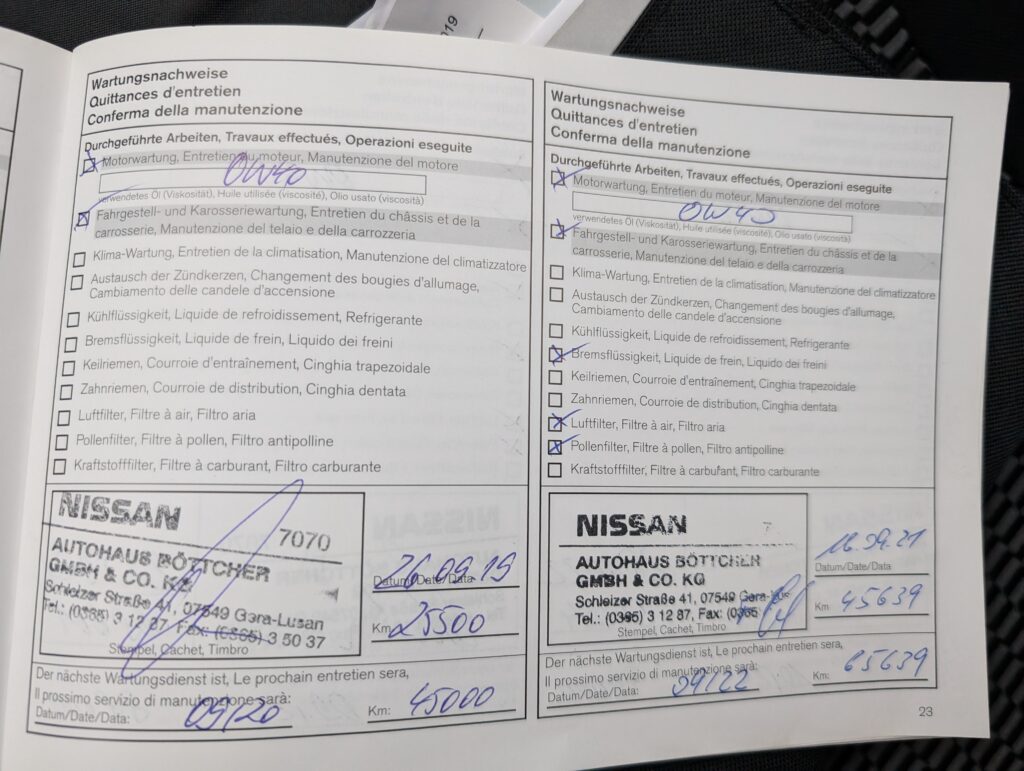 019
Wartungsnachweise
Quittances d'entretien
Conferma della manutenzione
Durchgeführte Arbeiten, Travaux effectués, Operazioni eseguite
Motorwartung, Entretien du moteur, Manutenzione del motore
0W40
verwendetes Öl (Viskosität), Huile utilisée (viscosité), Olio usato (viscosità)
Fahrgestell- und Karosseriewartung, Entretien du châssis et de la
carrosserie, Manutenzione del telaio e della carrozzeria
Klima-Wartung, Entretien de la climatisation, Manutenzione del climatizzatore
Austausch der Zündkerzen, Changement des bougies d'allumage,
Cambiamento delle candele d'accensione
Kühlflüssigkeit, Liquide de refroidissement, Refrigerante
Bremsflüssigkeit, Liquide de frein, Liquido dei freini
Keilriemen, Courroie d'entraînement, Cinghia trapezoidale
Zahnriemen, Courroie de distribution, Cinghia dentata
Luftfilter, Filtre à air, Filtro aria
Pollenfilter, Filtre à pollen, Filtro antipolline
Kraftstofffilter, Filtre à carburant, Filtro carburante
NISSAN
7070
AUTOHAUS BÖTTCHER
GMBH & CO. KG
Schleizer Straße 41, 07549 Gera-Lusan
Tel.: (0365) 3 12 87, Fax: (0365) 3 50 37
Stempel, Cachet, Timbro
26.09.19
Datum/Date/Data
Km 25500
Der nächste Wartungsdienst ist, Le prochain entretien sera,
Il prossimo servizio di manutenzione sarà:
Datum/Date/Data: 09/20
Km: 45000
Wartungsnachweise
Quittances d'entretien
Conferma della manutenzione
Durchgeführte Arbeiten, Travaux effectués, Operazioni eseguite
Motorwartung, Entretien du moteur, Manutenzione del motore
0W40
verwendetes Öl (Viskosität), Huile utilisée (viscosité), Olio usato (viscosità)
Fahrgestell- und Karosseriewartung, Entretien du châssis et de la
carrosserie, Manutenzione del telaio e della carrozzeria
Klima-Wartung, Entretien de la climatisation, Manutenzione del climatizzatore
Austausch der Zündkerzen, Changement des bougies d'allumage,
Cambiamento delle candele d'accensione
Kühlflüssigkeit, Liquide de refroidissement, Refrigerante
Bremsflüssigkeit, Liquide de frein, Liquido dei freini
Keilriemen, Courroie d'entraînement, Cinghia trapezoidale
Zahnriemen, Courroie de distribution, Cinghia dentata
Luftfilter, Filtre à air, Filtro aria
Pollenfilter, Filtre à pollen, Filtro antipolline
Kraftstofffilter, Filtre à carburant, Filtro carburante
NISSAN
7
AUTOHAUS BÖTTCHER
GMBH & CO. KG
Schleizer Straße 41, 07549 Gera-
Tel.: (0365) 3 12 87, Fax: (0365)
Stempel, Cachet, Timbro
16.09.21
Datum/Date/Data
Km 45639
Der nächste Wartungsdienst ist, Le prochain entretien sera,
Il prossimo servizio di manutenzione sarà:
Datum/Date/Data: 09/22
Km: 65639
23